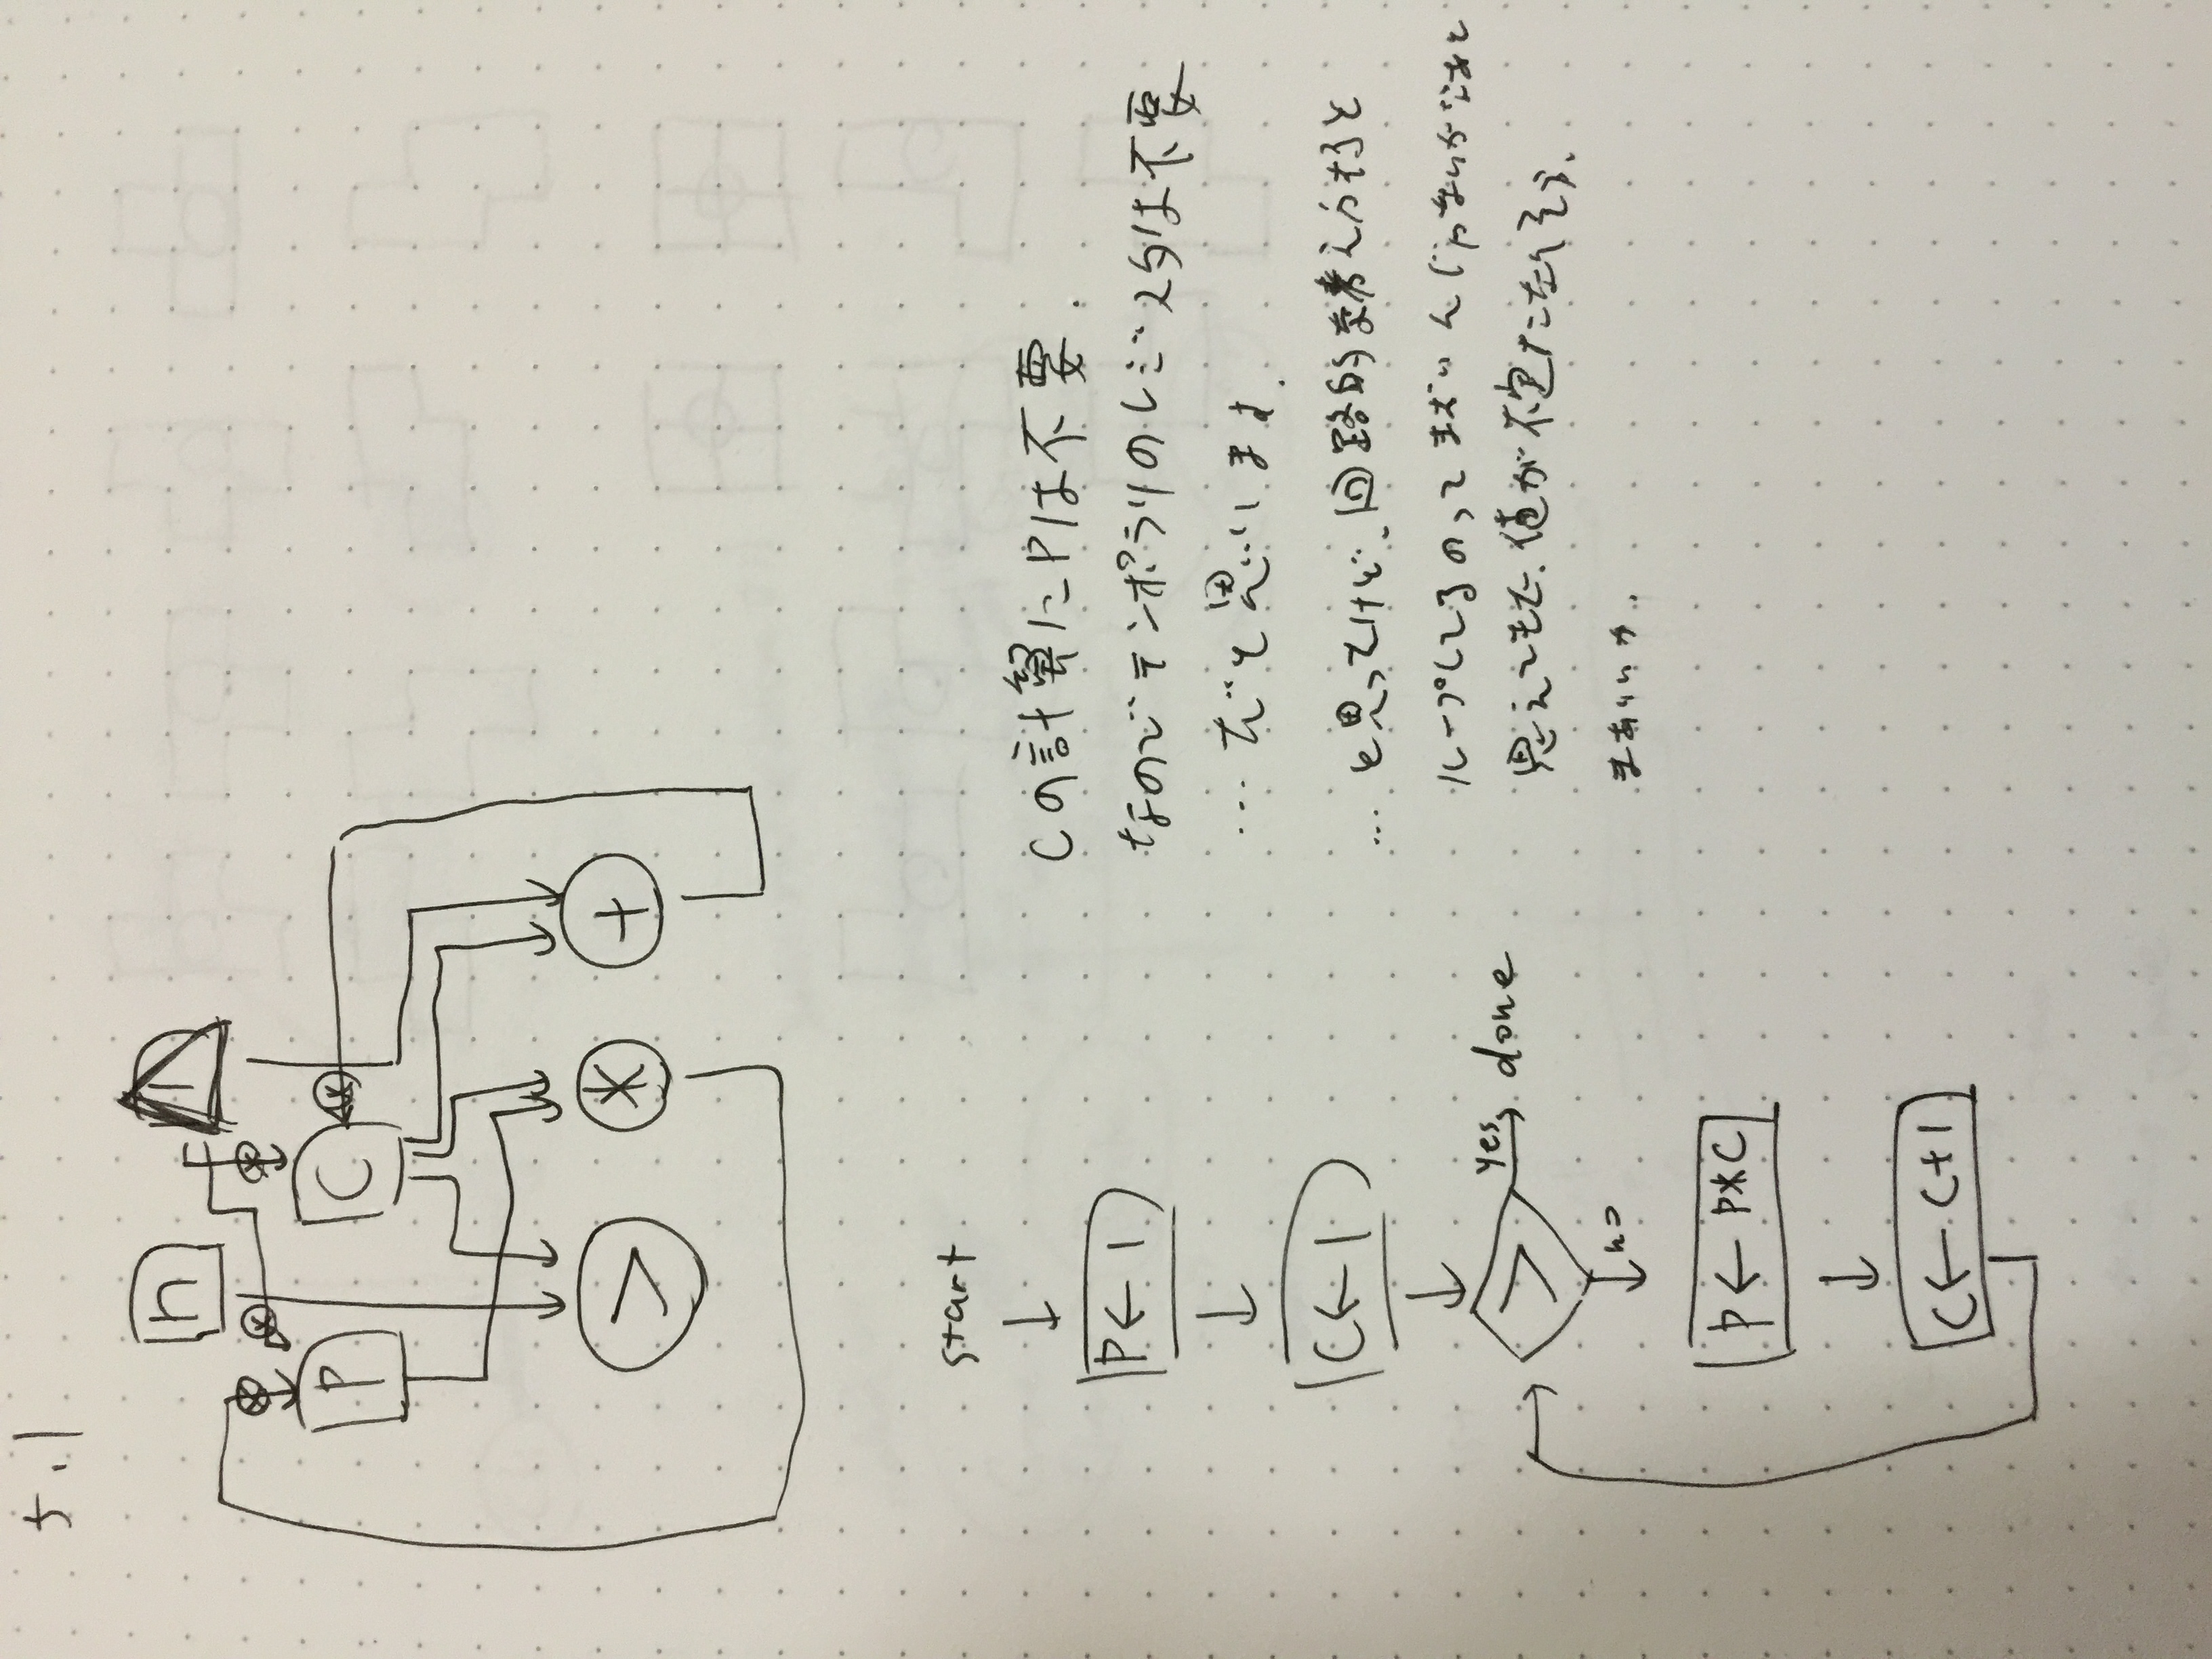 5.1
n
1
P
C
>
*
+
start
P ← 1
C ← 1
>
yes
done
no
P ← P*C
C ← C+1
Cの計算にPは不要.
なのでテンポラリのレジスタは不要
… だと思います.
… と思ったけど、回路的な考え方すると
ループしてるのってまずいんじゃないかなあと
思えてきた、値が不定になりそう.
まあいいか.